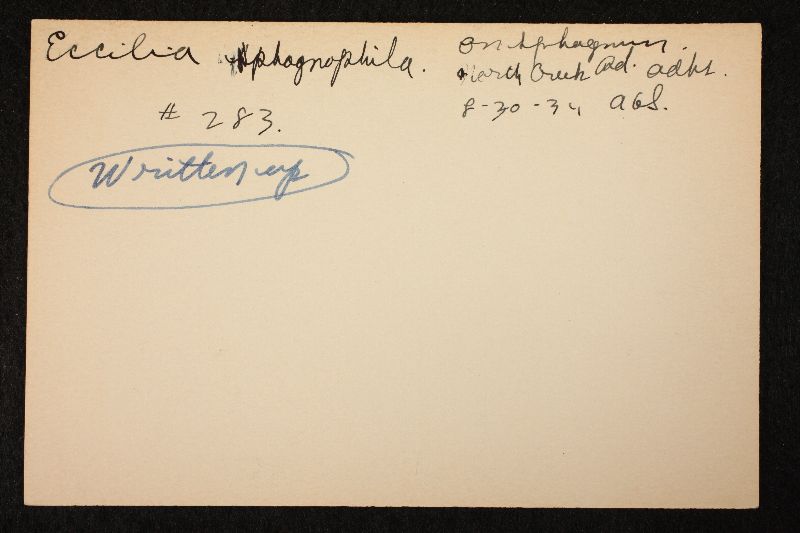 Eccilia sphagnophila.
on sphagnum.
North Creek Rd. adkt.
# 283.
8-30-34 AHS.
Written up